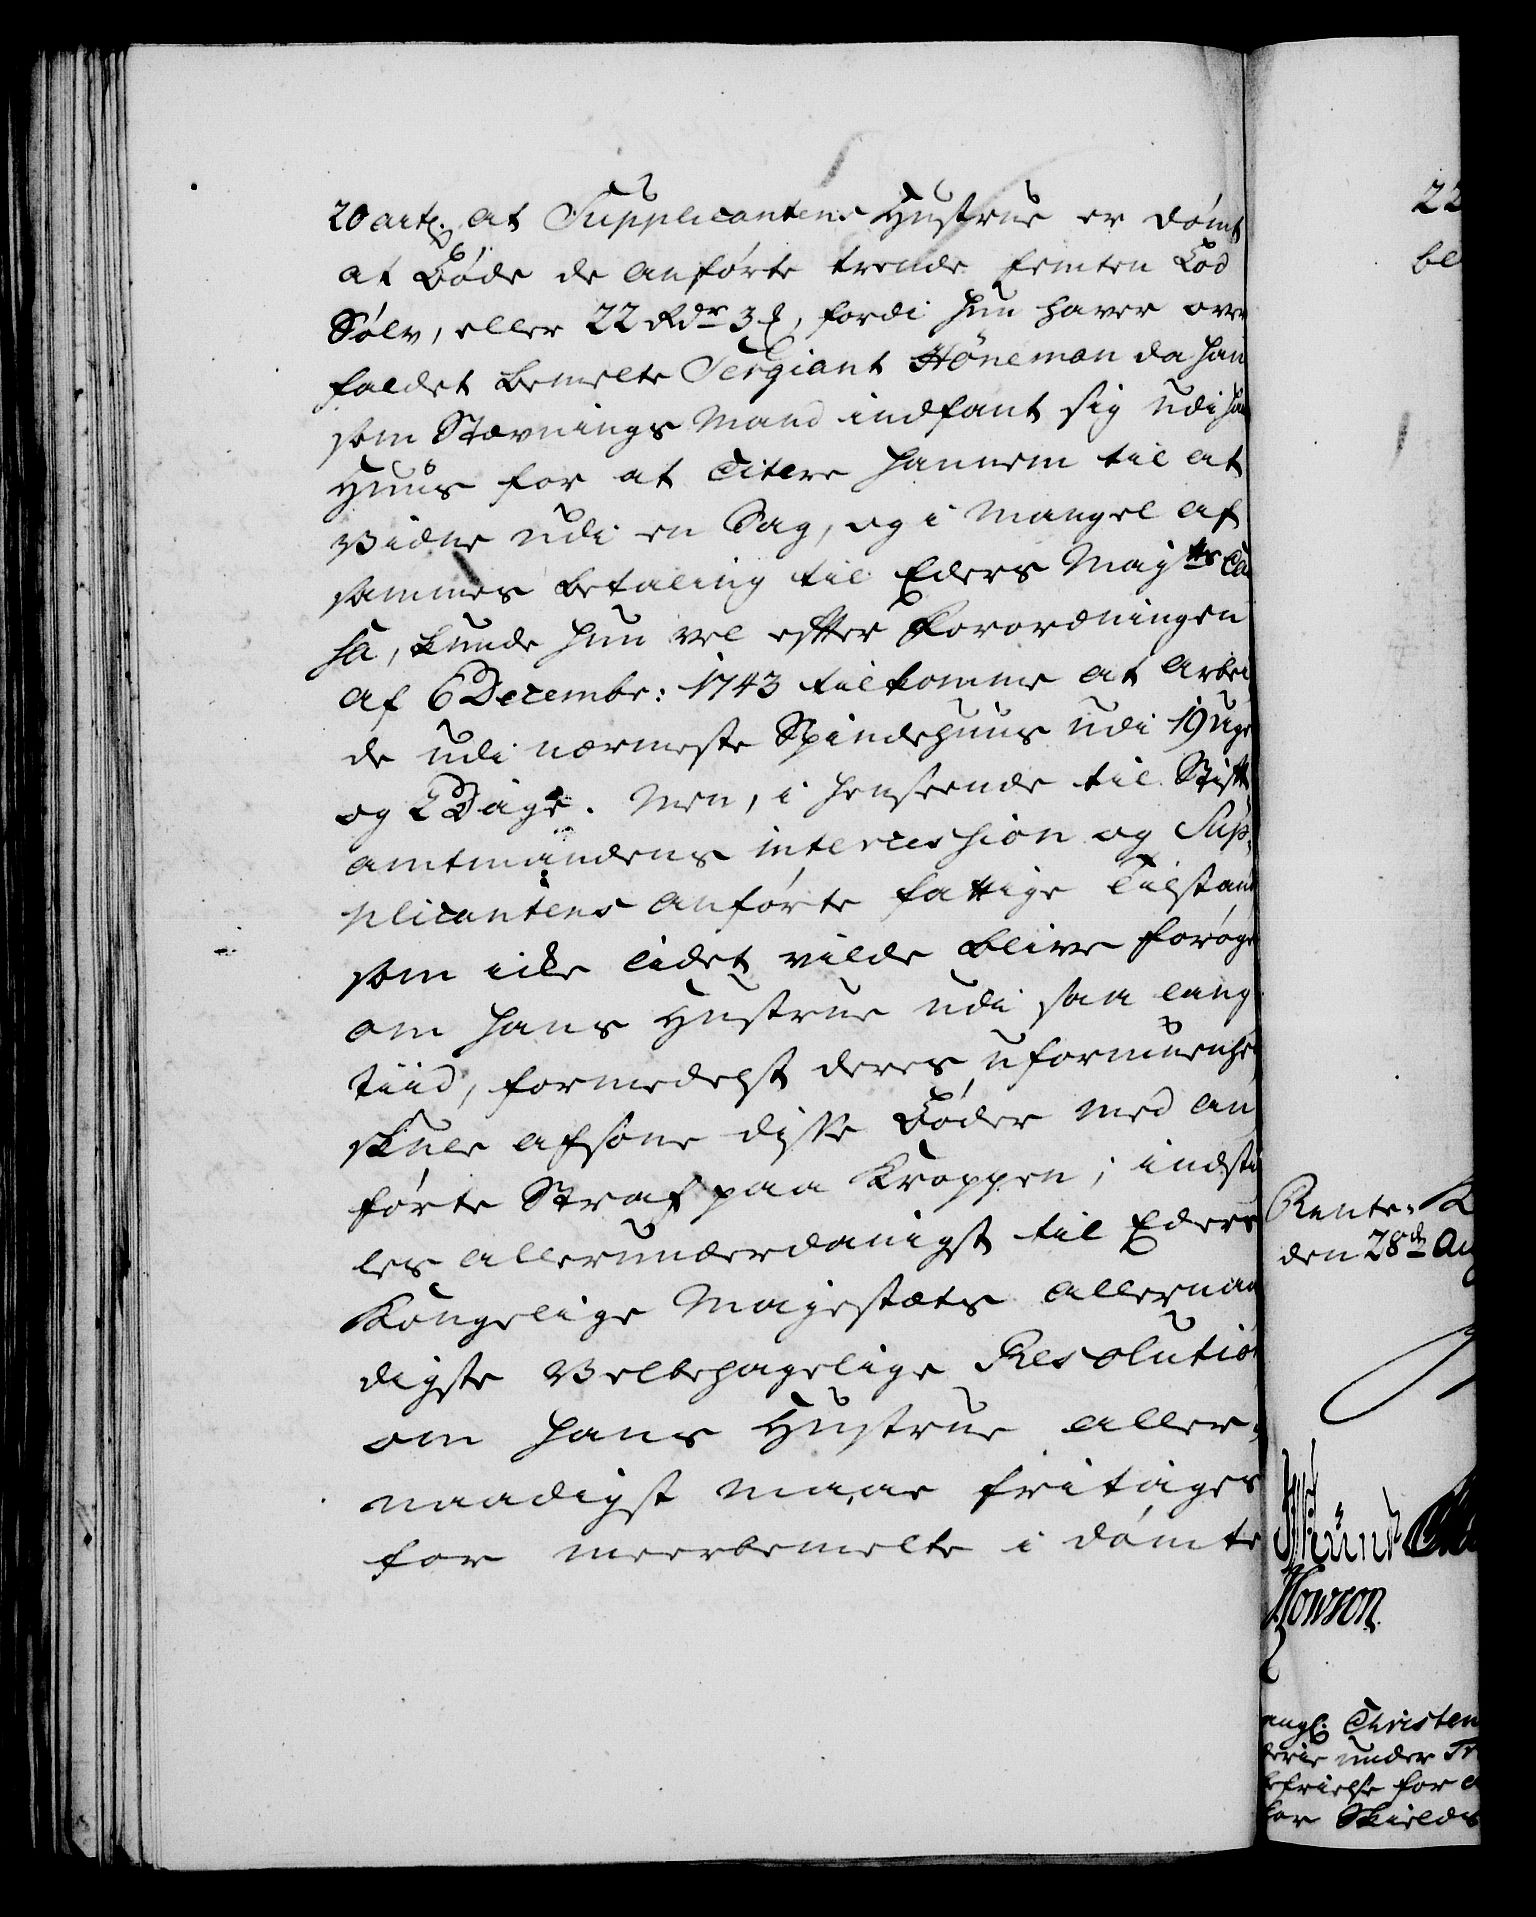 20 art: at Supplicantens Hustrue er dømt
at Bøde de anførte trende femten Lod
Sølv, eller 22 Rdr 3 , fordi hun haver over
faldet bemelte Sergiant Høneman da han
som Stævnings Mand indfant sig udi
Huus for at Citere hannem til at
Vidne udi en Sag, og i Mangel af
sammes betaling til Eders Mayts Ca
ssa, kunde hun vel efter Forordningen
af 6 Decembr: 1743 tilkomme at arbei
de udi nærmeste Spindehuus udi 19 Uger
og 2 Dage. Men, i henseende til Stift
amtmandens intercession og Sup,
plicantens anførte fattige Tilstand
som icke lidet vilde blive forøget
om hans Hustrue udi saa lang
tiid, formedelst deres uformuenhed
skule afsone disse Bøder med an
førte Straf paa Kroppen; indstil
les allerunderdanigst til Eders
Kongelige Mayestæts allernaa
digste Velbehagelige Resolution
om hans Hustrue aller,
naadigst maae fritages
for meerbemelte i dømte
22
be
Rente-K
den 28de Aug
Howson
angl: Christen
derie under Tr
befrielse for
for Skields